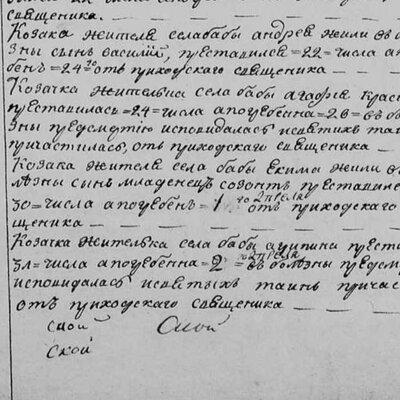 священика.
Козака жителя села бабы андрея жили в б
зны сынъ василий, преставился =22= числа а
бенъ =24го отъ приходскаго священика
Козачка жителька села бабы агафия Крас
преставилась =24= числа а погребенна =26= въ бо
зны предсмертию исповидалась и святихъ таи
причастилась, отъ приходскаго священика
Козака жителя села бабы Екима жили в
лѣзны сынъ младенецъ созонтъ преставилс
30= числа а погребенъ = 1го апреля отъ приходскаго
щеника
Козачка жителька села бабы агрипина преста
31= числа а погребенна = 2го апреля = въ болѣзны предсм
исповидалась и святыхъ таинъ причас
отъ приходскаго священика
ской
ской